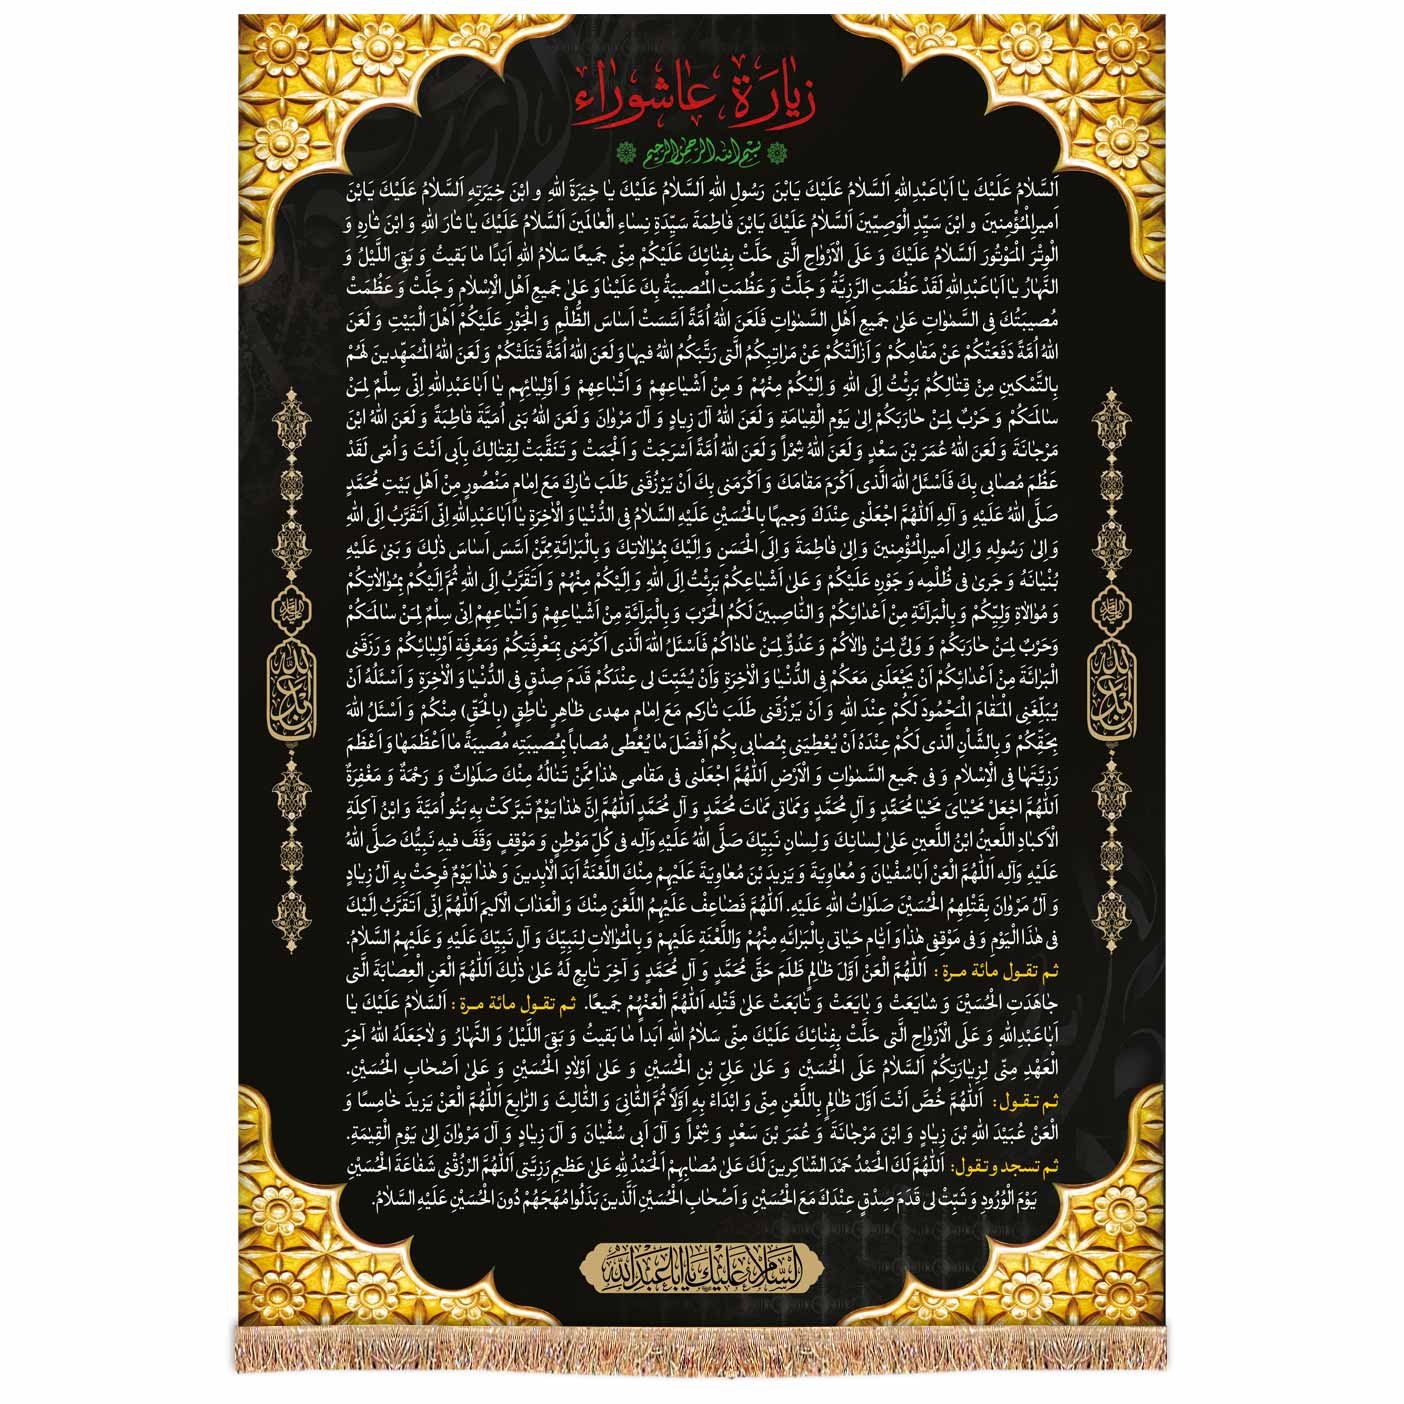 زيارة عاشوراء
بسم الله الرحمن الرحيم
اَلسَّلامُ عَلَيْكَ يا اَباعَبْدِاللهِ اَلسَّلامُ عَلَيْكَ يَابْنَ رَسُولِ اللهِ اَلسَّلامُ عَلَيْكَ يا خِيَرَةَ اللهِ و ابْنَ خِيَرَتِهِ اَلسَّلامُ عَلَيْكَ يَابْنَ
اَميرِالْمُؤْمِنينَ و ابْنَ سَيِّدِ الْوَصِيّينَ اَلسَّلامُ عَلَيْكَ يَابْنَ فاطِمَةَ سَيِّدَةِ نِساءِ الْعالَمينَ اَلسَّلامُ عَلَيْكَ يا ثارَ اللهِ وَ ابْنَ ثارِهِ وَ
الْوِتْرَ الْمَوْتُورَ اَلسَّلامُ عَلَيْكَ وَ عَلَى الْاَرْواحِ الَّتى حَلَّتْ بِفِنائِكَ عَلَيْكُمْ مِنّى جَميعًا سَلامُ اللهِ اَبَدًا ما بَقيتُ وَ بَقِىَ اللَّيْلُ وَ
النَّهارُ يا اَباعَبْدِاللهِ لَقَدْ عَظُمَتِ الرَّزِيَّةُ وَ جَلَّتْ وَ عَظُمَتِ الْمُصيبَةُ بِكَ عَلَيْنا وَ عَلى جَميعِ اَهْلِ الْاِسْلامِ وَ جَلَّتْ وَ عَظُمَتْ
مُصيبَتُكَ فِى السَّمٰواتِ عَلى جَميعِ اَهْلِ السَّمٰواتِ فَلَعَنَ اللهُ اُمَّةً اَسَّسَتْ اَساسَ الظُّلْمِ وَ الْجَوْرِ عَلَيْكُمْ اَهْلَ الْبَيْتِ وَ لَعَنَ
اللهُ اُمَّةً دَفَعَتْكُمْ عَنْ مَقامِكُمْ وَ اَزالَتْكُمْ عَنْ مَراتِبِكُمُ الَّتى رَتَّبَكُمُ اللهُ فيها وَ لَعَنَ اللهُ اُمَّةً قَتَلَتْكُمْ وَ لَعَنَ اللهُ الْمُمَهِّدينَ لَهُمْ
بِالتَّمْكينِ مِنْ قِتالِكُمْ بَرِئْتُ اِلَى اللهِ وَ اِلَيْكُمْ مِنْهُمْ وَ مِنْ اَشْياعِهِمْ وَ اَتْباعِهِمْ وَ اَوْلِيائِهِم يا اَباعَبْدِاللهِ اِنّى سِلْمٌ لِمَنْ
سالَمَكُمْ وَ حَرْبٌ لِمَنْ حارَبَكُمْ اِلى يَوْمِ الْقِيامَةِ وَ لَعَنَ اللهُ آلَ زِيادٍ وَ آلَ مَرْوانَ وَ لَعَنَ اللهُ بَنى اُمَيَّةَ قاطِبَةً وَ لَعَنَ اللهُ ابْنَ
مَرْجانَةَ وَ لَعَنَ اللهُ عُمَرَ بْنَ سَعْدٍ وَ لَعَنَ اللهُ شِمْراً وَ لَعَنَ اللهُ اُمَّةً اَسْرَجَتْ وَ اَلْجَمَتْ وَ تَنَقَّبَتْ لِقِتالِكَ بِاَبى اَنْتَ وَ اُمّى لَقَدْ
عَظُمَ مُصابى بِكَ فَاَسْئَلُ اللهَ الَّذى اَكْرَمَ مَقامَكَ وَ اَكْرَمَنى بِكَ اَنْ يَرْزُقَنى طَلَبَ ثارِكَ مَعَ اِمامٍ مَنْصُورٍ مِنْ اَهْلِ بَيْتِ مُحَمَّدٍ
صَلَّى اللهُ عَلَيْهِ وَ آلِهِ اَللّهُمَّ اجْعَلْنى عِنْدَكَ وَجيهًا بِالْحُسَيْنِ عَلَيْهِ السَّلامُ فِى الدُّنْيا وَ الْاخِرَةِ يا اَباعَبْدِاللهِ اِنّى اَتَقَرَّبُ اِلَى اللهِ
وَ اِلى رَسُولِهِ وَ اِلى اَميرِالْمُؤْمِنينَ وَ اِلى فاطِمَةَ وَ اِلَى الْحَسَنِ وَ اِلَيْكَ بِمُوالاتِكَ وَ بِالْبَرائَةِ مِمَّنْ اَسَّسَ اَساسَ ذٰلِكَ وَ بَنى عَلَيْهِ
بُنْيانَهُ وَ جَرىٰ فى ظُلْمِهِ وَ جَوْرِهِ عَلَيْكُمْ وَ عَلى اَشْياعِكُمْ بَرِئْتُ اِلَى اللهِ وَ اِلَيْكُمْ مِنْهُمْ وَ اَتَقَرَّبُ اِلَى اللهِ ثُمَّ اِلَيْكُمْ بِمُوالاتِكُمْ
وَ مُوالاةِ وَلِيِّكُمْ وَ بِالْبَرآئَةِ مِنْ اَعْدائِكُمْ وَ النّاصِبينَ لَكُمُ الْحَرْبَ وَ بِالْبَرآئَةِ مِنْ اَشْياعِهِمْ وَ اَتْباعِهِمْ اِنّى سِلْمٌ لِمَنْ سالَمَكُمْ
وَحَرْبٌ لِمَنْ حارَبَكُمْ وَ وَلِىٌّ لِمَنْ والاكُمْ وَ عَدُوٌّ لِمَنْ عاداكُمْ فَاَسْئَلُ اللهَ الَّذى اَكْرَمَنى بِمَعْرِفَتِكُمْ وَمَعْرِفَةِ اَوْلِيائِكُمْ وَ رَزَقَنِى
الْبَرائَةَ مِنْ اَعْدائِكُمْ اَنْ يَجْعَلَنى مَعَكُمْ فِى الدُّنْيا وَ الْاخِرَةِ وَاَنْ يُثَبِّتَ لى عِنْدَكُمْ قَدَمَ صِدْقٍ فِى الدُّنْيا وَ الْاخِرَةِ وَ اَسْئَلُهُ اَنْ
يُبَلِّغَنِى الْمَقامَ الْمَحْمُودَ لَكُمْ عِنْدَ اللهِ وَ اَنْ يَرْزُقَنى طَلَبَ ثارِكم مَعَ اِمامٍ مهدى ظاهِرٍ ناطِقٍ (بِالْحَقِ) مِنْكُمْ وَ اَسْئَلُ اللهَ
بِحَقِّكُمْ وَ بِالشَّاْنِ الَّذى لَكُمْ عِنْدَهُ اَنْ يُعْطِيَنى بِمُصابى بِكُمْ اَفْضَلَ ما يُعْطى مُصاباً بِمُصيبَتِهِ مُصيبَةً ما اَعْظَمَها وَ اَعْظَمَ
رَزِيَّتَها فِى الْاِسْلامِ وَ فى جَميعِ السَّمٰواتِ وَ الْاَرْضِ اَللّهُمَّ اجْعَلْنى فى مَقامى هٰذا مِمَّنْ تَنالُهُ مِنْكَ صَلَواتٌ وَ رَحْمَةٌ وَ مَغْفِرَةٌ
اَللّهُمَّ اجْعَلْ مَحْياىَ مَحْيا مُحَمَّدٍ وَ آلِ مُحَمَّدٍ وَمَماتى مَماتَ مُحَمَّدٍ وَ آلِ مُحَمَّدٍ اَللّهُمَّ اِنَّ هٰذا يَوْمٌ تَبَرَّكَتْ بِهِ بَنُو اُمَيَّةَ وَ ابْنُ آكِلَةِ
الْاَكبادِ اللَّعينُ ابْنُ اللَّعينِ عَلى لِسانِكَ وَ لِسانِ نَبِيِّكَ صَلَّى اللهُ عَلَيْهِ وَآلِهِ فى كُلِّ مَوْطِنٍ وَ مَوْقِفٍ وَقَفَ فيهِ نَبِيُّكَ صَلَّى اللهُ
عَلَيْهِ وَآلِهِ اَللّهُمَّ الْعَنْ اَباسُفْيانَ وَ مُعاوِيَةَ وَ يَزيدَ بْنَ مُعاوِيَةَ عَلَيْهِمْ مِنْكَ اللَّعْنَةُ اَبَدَ الْاٰبِدينَ وَ هٰذا يَوْمٌ فَرِحَتْ بِهِ آلُ زِيادٍ
وَ آلُ مَرْوانَ بِقَتْلِهِمُ الْحُسَيْنَ صَلَواتُ اللهِ عَلَيْهِ. اَللّهُمَّ فَضاعِفْ عَلَيْهِمُ اللَّعْنَ مِنْكَ وَ الْعَذابَ الْاَليمَ اَللّهُمَّ اِنّى اَتَقَرَّبُ اِلَيْكَ
فى هٰذَا الْيَوْمِ وَ فى مَوْقِفى هٰذا وَ اَيّامِ حَياتى بِالْبَرائَهِ مِنْهُمْ وَاللَّعْنَةِ عَلَيْهِمْ وَ بِالْمُوالاتِ لِنَبِيِّكَ وَ آلِ نَبِيِّكَ عَلَيْهِ وَ عَلَيْهِمُ السَّلامُ.
ثم تقول مائة مرة : اَللّهُمَّ الْعَنْ اَوَّلَ ظالِمٍ ظَلَمَ حَقَّ مُحَمَّدٍ وَ آلِ مُحَمَّدٍ وَ آخِرَ تابِعٍ لَهُ عَلى ذٰلِكَ اَللّهُمَّ الْعَنِ الْعِصابَةَ الَّتى
جاهَدَتِ الْحُسَيْنَ وَ شايَعَتْ وَ بايَعَتْ وَ تابَعَتْ عَلى قَتْلِهِ اَللّهُمَّ الْعَنْهُمْ جَميعًا. ثم تقول مائة مرة : اَلسَّلامُ عَلَيْكَ يا
اَباعَبْدِاللهِ وَ عَلَى الْاَرْواحِ الَّتى حَلَّتْ بِفِنائِكَ عَلَيْكَ مِنّى سَلامُ اللهِ اَبَداً ما بَقيتُ وَ بَقِىَ اللَّيْلُ وَ النَّهارُ وَ لاجَعَلَهُ اللهُ آخِرَ
الْعَهْدِ مِنّى لِزِيارَتِكُمْ اَلسَّلامُ عَلَى الْحُسَيْنِ وَ عَلى عَلِىِّ بْنِ الْحُسَيْنِ وَ عَلى اَوْلادِ الْحُسَيْنِ وَ عَلى اَصْحابِ الْحُسَيْنِ.
ثم تقول: اَللّهُمَّ خُصَّ اَنْتَ اَوَّلَ ظالِمٍ بِاللَّعْنِ مِنّى وَ ابْدَاْءْ بِهِ اَوَّلاً ثُمَّ الثّانِىَ وَ الثّالِثَ وَ الرّابِعَ اَللّهُمَّ الْعَنْ يَزيدَ خامِسًا وَ
الْعَنْ عُبَيْدَ اللهِ بْنَ زِيادٍ وَ ابْنَ مَرْجانَةَ وَ عُمَرَ بْنَ سَعْدٍ وَ شِمْراً وَ آلَ اَبى سُفْيانَ وَ آلَ زِيادٍ وَ آلَ مَرْوانَ اِلى يَوْمِ الْقِيٰمَةِ.
ثم تسجد و تقول: اَللّهُمَّ لَكَ الْحَمْدُ حَمْدَ الشّاكِرينَ لَكَ عَلى مُصابِهِمْ اَلْحَمْدُ لِلهِ عَلى عَظيمِ رَزِيَّتى اَللّهُمَّ الرْزُقْنى شَفاعَةَ الْحُسَيْنِ
يَوْمَ الْوُرُودِ وَ ثَبِّتْ لى قَدَمَ صِدْقٍ عِنْدَكَ مَعَ الْحُسَيْنِ وَ اَصْحابِ الْحُسَيْنِ اَلَّذينَ بَذَلُوا مُهَجَهُمْ دُونَ الْحُسَيْنِ عَلَيْهِ السَّلامُ.
السلام عليك يا اباعبدالله